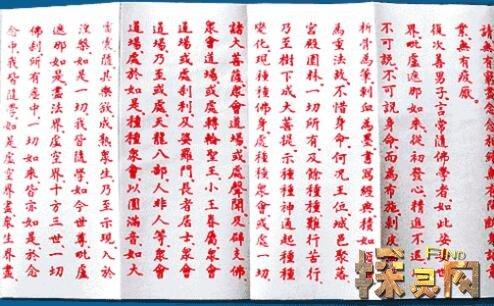 無有窮盡念念相續無有間斷身語
業無有疲厭
復次善男子言常隨佛學者如此娑婆世
界毗盧遮那如來從初發心精進不退
不可說不可說身命而為布施剝皮
析骨為筆刺血為墨書寫經典積如
為重法故不惜身命何況王位城邑聚落
宮殿園林一切所有及餘種種難行苦行
乃至樹下成大菩提示種種神通起種種
變化現種種佛身處種種眾會或處一切
諸大菩薩眾會道場或處聲聞及辟支佛
眾會道場或處轉輪聖王小王眷屬眾會
道場或處剎利及婆羅門長者居士眾會
道場乃至或處天龍八部人非人等眾會
道場處於如是種種眾會以圓滿音如大
雷震隨其樂欲成熟眾生乃至示現入於
涅槃如是一切我皆隨學如今世尊毗盧
遮那如是盡法界虛空界十方三世一切
佛剎所有塵中一切如來皆亦如是於念
念中我皆隨學如是虛空界盡眾生界盡
FIND